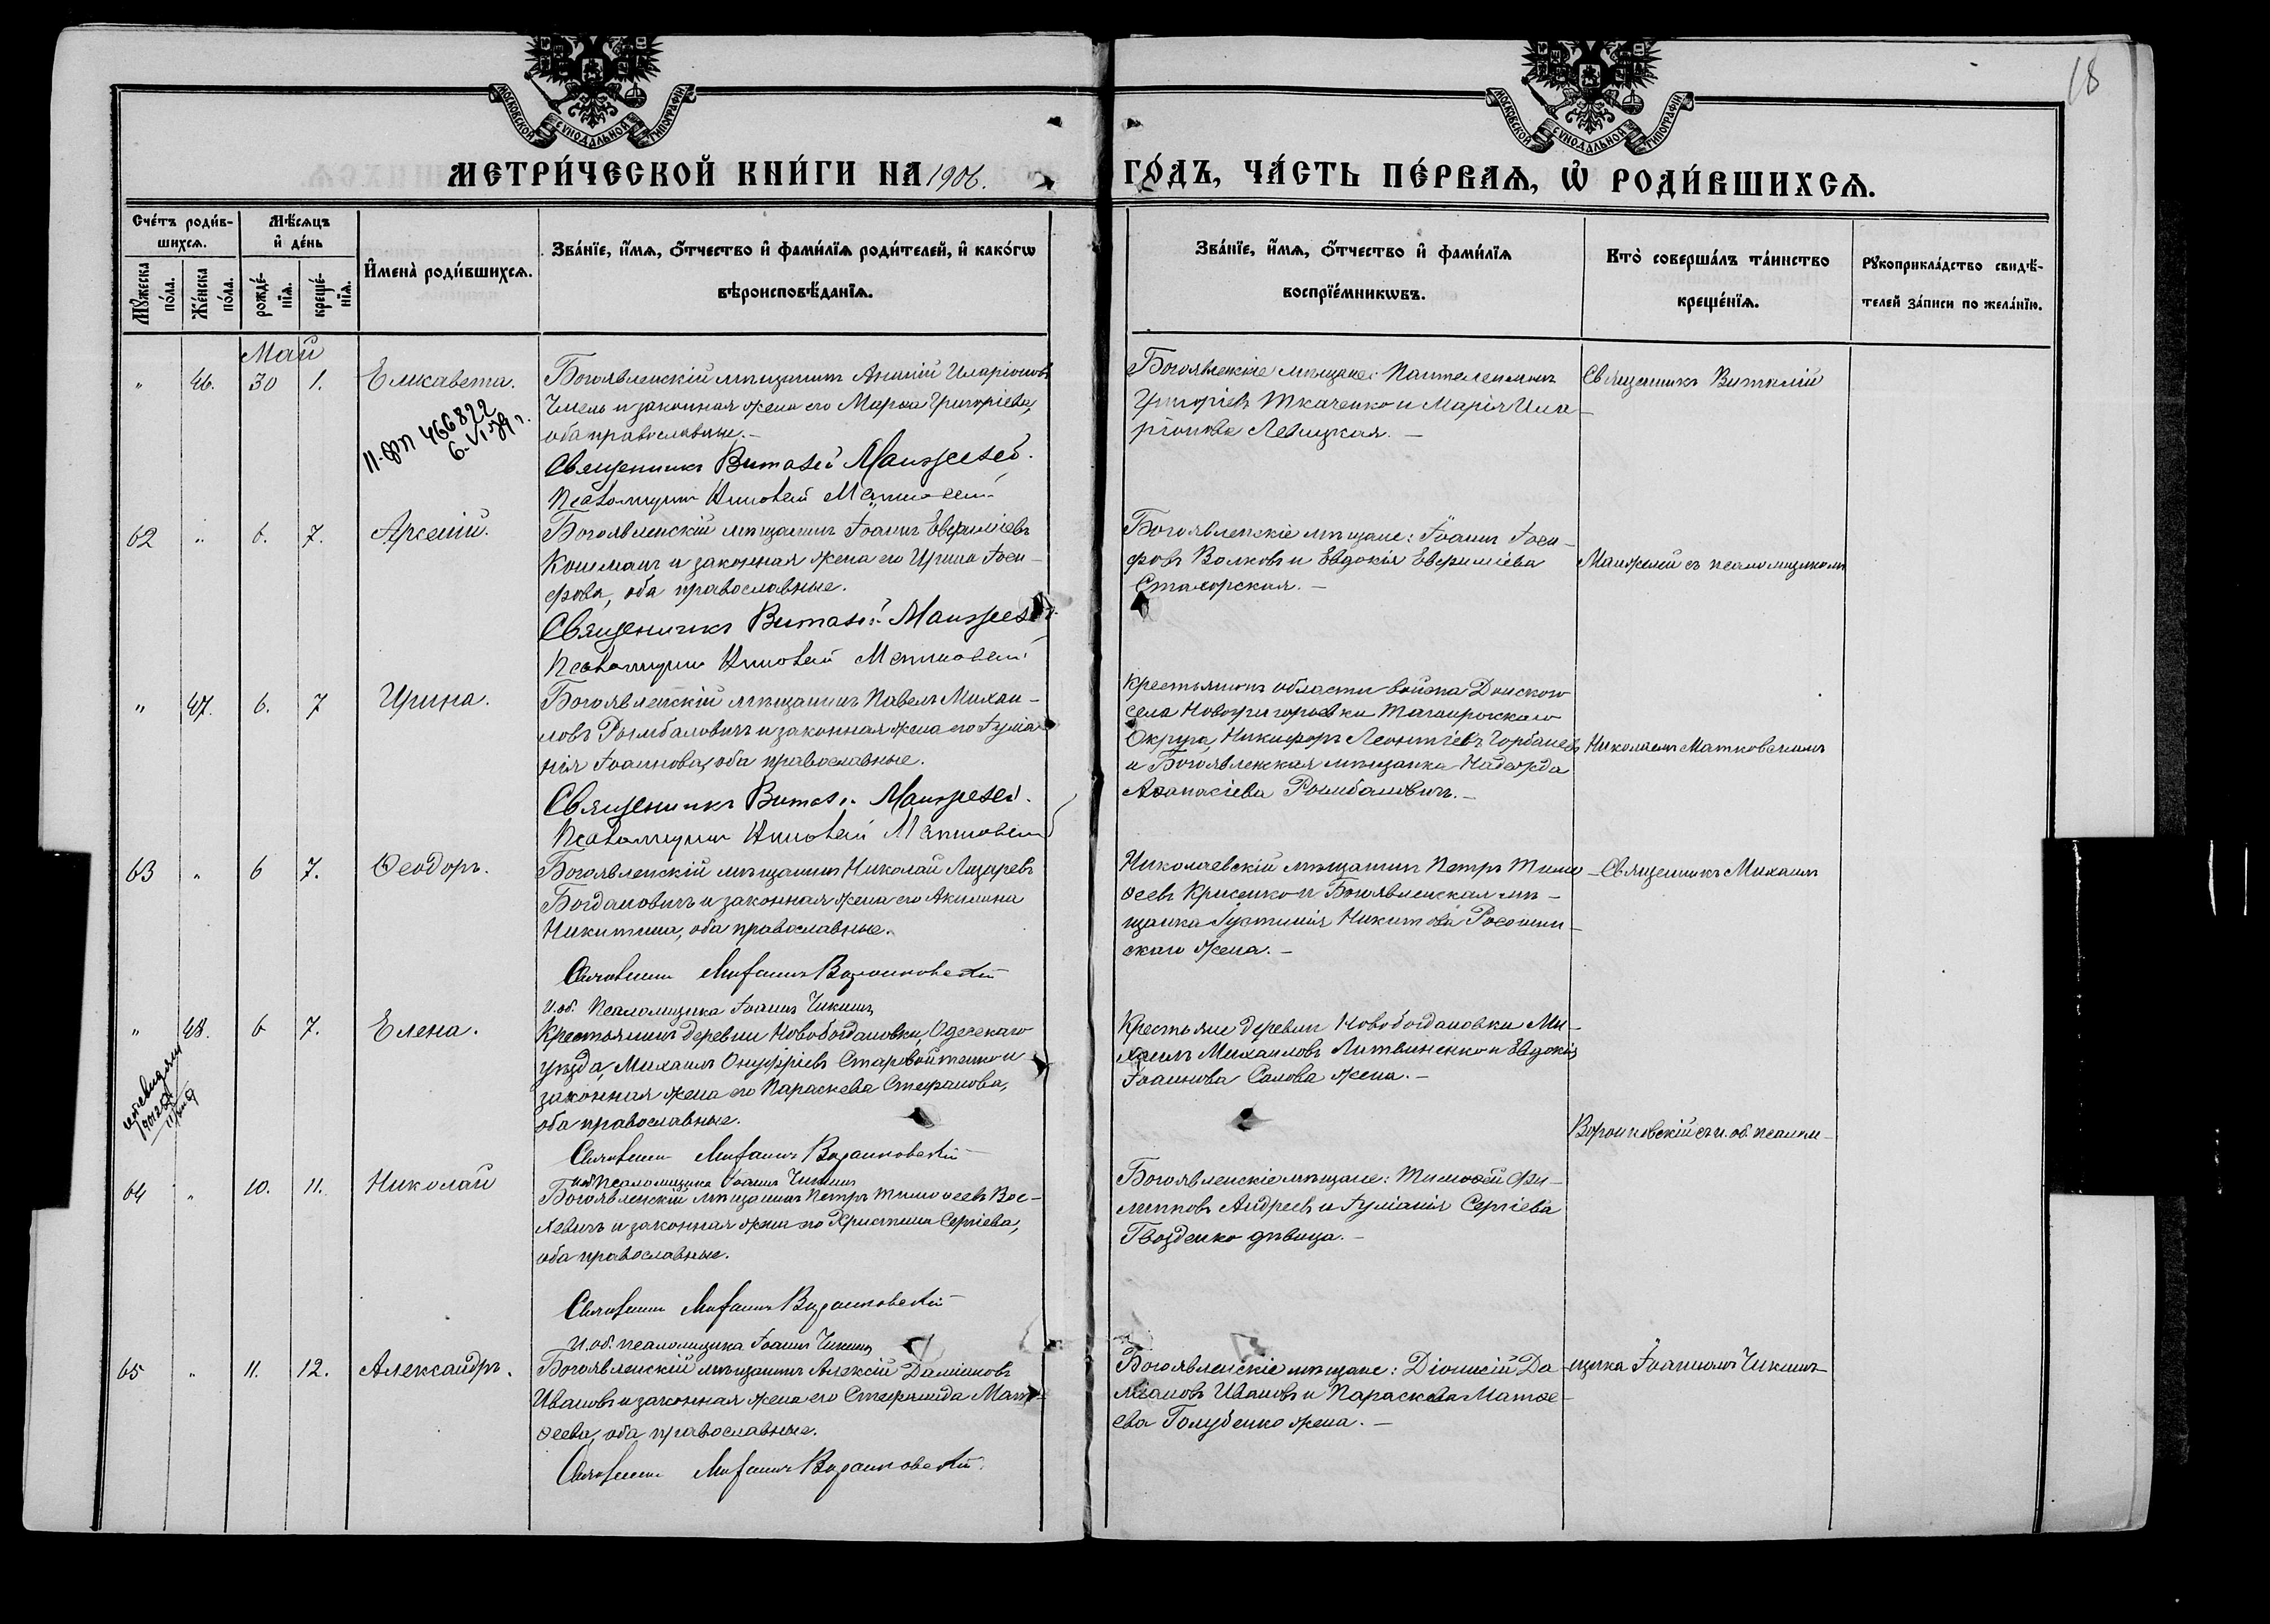 18
МОСКОВСКОЙ СѴНОДАЛЬНОЙ ТИПОГРАФІИ
МОСКОВСКОЙ СѴНОДАЛЬНОЙ ТИПОГРАФІИ
МЕТРИ́ЧЕСКОЙ КНИ́ГИ НА 1906.
ГО́ДЪ, ЧА́СТЬ ПЕ́РВАѦ, Ѡ҆ РОДИ́ВШИХСѦ.
Сче́тъ роди́в-
шихсѧ.
Мꙋ́жеска по́ла.
Же́нска по́ла.
Мѣ́сѧцъ
и҆ де́нь
рожде́-
нїѧ.
креще́-
нїѧ.
И҆мена̀ роди́вшихсѧ.
Зва́нїе, и҆́мѧ, ѻ҆́тчество и҆ фами́лїѧ роди́телей, и҆ како́гѡ
вѣроисповѣ́данїѧ.
Зва́нїе, и҆́мѧ, ѻ҆́тчество и҆ фами́лїѧ
воспрїе́мникѡвъ.
Кто̀ соверша́лъ та́инство
креще́нїѧ.
Рꙋкоприкла́дство свидѣ́-
телей за́писи по жела́нїю.
Май
" 46. 30 1. Елисавета.
II-ФП 466822
6.VI.
Богоявленскій мѣщанинъ Ананій Иларіоновъ
Чмель и законная жена его Марѳа Григоріева,
оба православные.–
Священникъ Виталій Манжелей.
Псаломщикъ Николай Матковскій
Богоявленскіе мѣщане: Пантелеимонъ
Григоріевъ Ткаченко и Марія Ила-
ріонова Левицкая.–
Священникъ Виталій
62 " 6. 7. Арсеній.
Богоявленскій мѣщанинъ Іоаннъ Евѳиміевъ
Кошманъ и законная жена его Ирина Іоси-
фова, оба православные.
Священникъ Виталій Манжелей.
Псаломщикъ Николай Матковскій
Богоявленскіе мѣщане: Іоаннъ Іоси-
фовъ Волковъ и Евдокія Евѳиміева
Сталорская.–
Манжелей съ псаломщикомъ
" 47. 6. 7 Ирина.
Богоявленскій мѣщанинъ Павелъ Михаи-
ловъ Рымбаловичъ и законная жена его Іуліа-
нія Іоаннова, оба православные.
Священникъ Виталій Манжелей.
Псаломщикъ Николай Матковскій
Крестьянинъ области войска Донского
села Новогригорьевки Таганрогскаго
Округа, Никифоръ Леонтіевъ Горбаневъ
и Богоявленская мѣщанка Надежда
Аѳанасіева Рымбаловичъ.–
Николаемъ Матковскимъ
63 " 6 7. Ѳеодоръ.
Богоявленскій мѣщанинъ Николай Лазаревъ
Богдановичъ и законная жена его Акилина
Никитина, оба православные.
Священникъ Михаилъ Воронковскій
И. об. псаломщика Іоаннъ Чикинъ
Николаевскій мѣщанинъ Петръ Тимо-
ѳеевъ Крисенко и Богоявленская мѣ-
щанка Іустинія Никитова
скаго жена.–
Священникъ Михаилъ
" 48. 6 7. Елена.
Крестьянинъ деревни Новобогдановки, Одесскаго
уѣзда, Михаилъ Онуфріевъ Старовойтенко и
законная жена его Параскева Стефанова,
оба православные.
Священникъ Михаилъ Воронковскій
И. об. псаломщика Іоаннъ Чикинъ
Крестьяне деревни Новобогдановки Ми-
хаилъ Михаиловъ Литвиненко и Евдокія
Іоаннова Салова жена.–
Воронковскій съ и. об. псалом-
64 " 10. 11. Николай
Богоявленскій мѣщанинъ Петръ Тимоѳеевъ Вос-
левичъ и законная жена его Христина Сергіева,
оба православные.
Священникъ Михаилъ Воронковскій
И. об. псаломщика Іоаннъ Чикинъ
Богоявленскіе мѣщане: Тимоѳей Фи-
липповъ Андреевъ и Іуліанія Сергіева
Гвозденко дѣвица.–
65 " 11. 12. Александръ.
Богоявленскій мѣщанинъ Алексій Даміановъ
Ивановъ и законная жена его Стефанида Мат-
ѳеева, оба православные.
Священникъ Михаилъ Воронковскій
Богоявленскіе мѣщане: Діонисій Да-
міановъ Ивановъ и Параскева Матѳе-
ева Голубенко жена.–
щика Іоанномъ Чикинъ